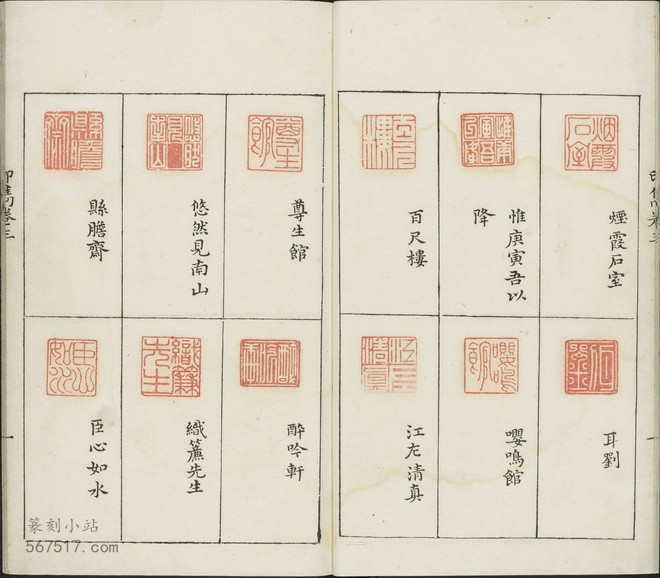 煙霞石室
惟庚寅吾以
降
百尺樓
耳劉
嚶鳴館
江左清真
尊生館
悠然見南山
縣膽齋
醉吟軒
織簾先生
臣心如水
篆刻小站
567517.com